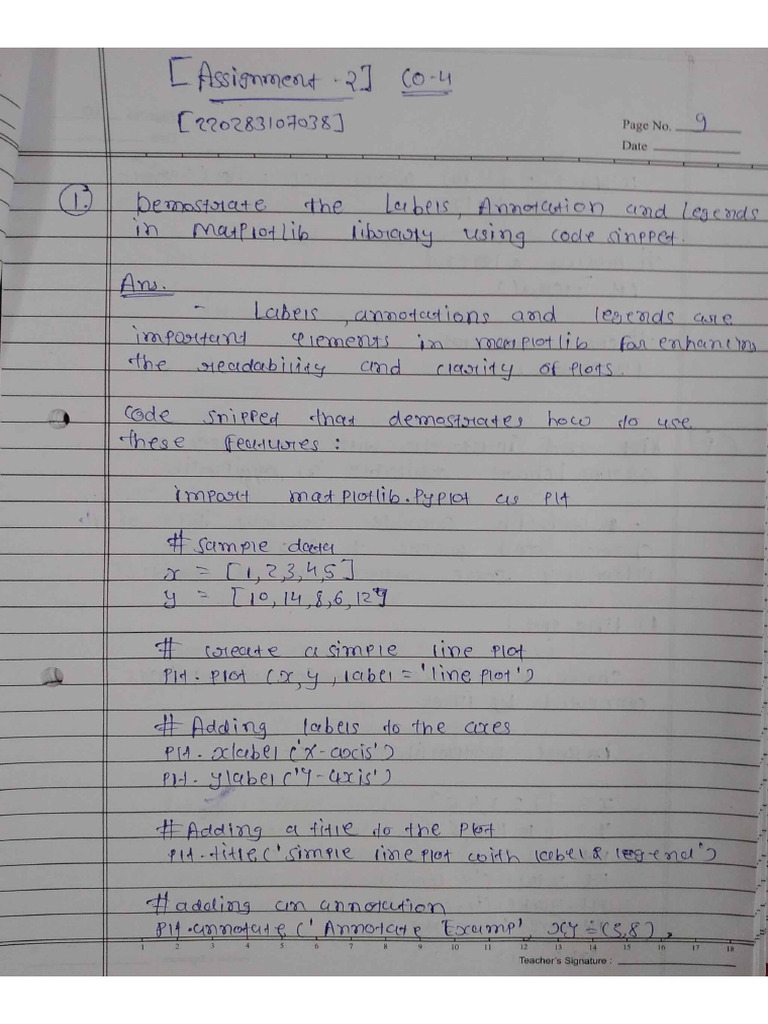 [Assignment-2] CO-4
[220283107038]
Page No. 9
Date
1. Demostrate the Labels, Annotation and legends
in Matplotlib library using code sinppet.
Ans.
- Labels, annotations and legends are
important elements in matplotlib for enhancing
the readability and clarity of plots.
Code snipped that demostrates how to use
these features :
import matplotlib.pyplot as plt
# sample data
x = [1,2,3,4,5]
y = [10,14,8,6,12]
# create a simple line plot
plt.plot (x,y, label='line plot')
# Adding labels to the axes
plt.xlabel('X-axis')
plt.ylabel('Y-axis')
# Adding a title to the plot
plt.title('simple line plot with label & legend')
# adding an annotation
plt.annotate('Annotate Examp', xy=(3,8),
1 2 3 4 5 6 7 8 9 10 11 12 13 14 15 16 17 18
Teacher's Signature :